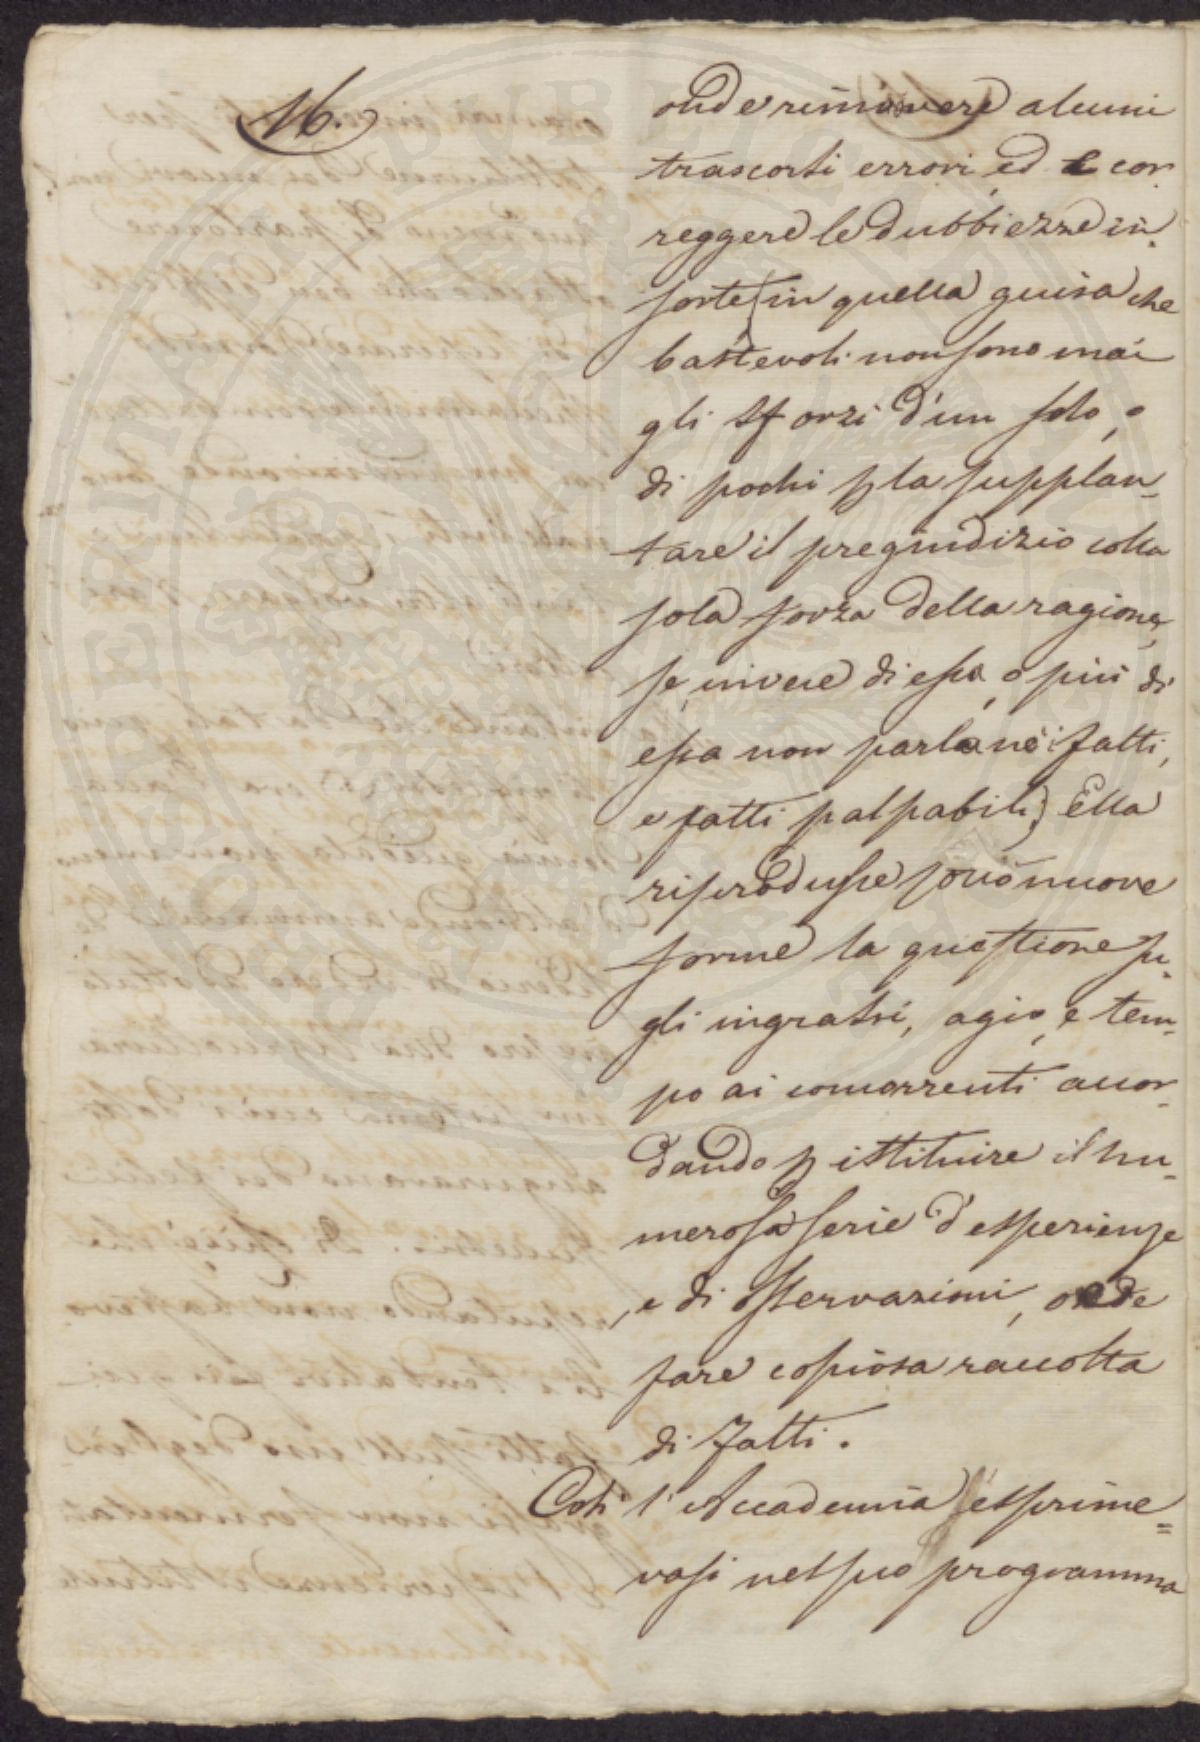 16.
onde rimovere alcuni
trascorsi errori, ed cor
reggere le dubbiezze in-
sorte (in quella guisa che
bastevoli non sono mai
gli sforzi d'un solo, o
di pochi p la supplan-
tare il pregiudizio colla
sola forza della ragione,
se, invece di essa, o più di
essa non parlano i fatti,
e fatti palpabili) Ella
riprodusse sotto nuove
forme la questione su-
gli ingrassi, agio, e tem-
po ai concorrenti accor-
dando p istituire il nu-
merosa serie d'esperienze
e di osservazioni, onde
fare copiosa raccolta
di fatti.
Così l'Accademia esprime=
vasi nel suo programma